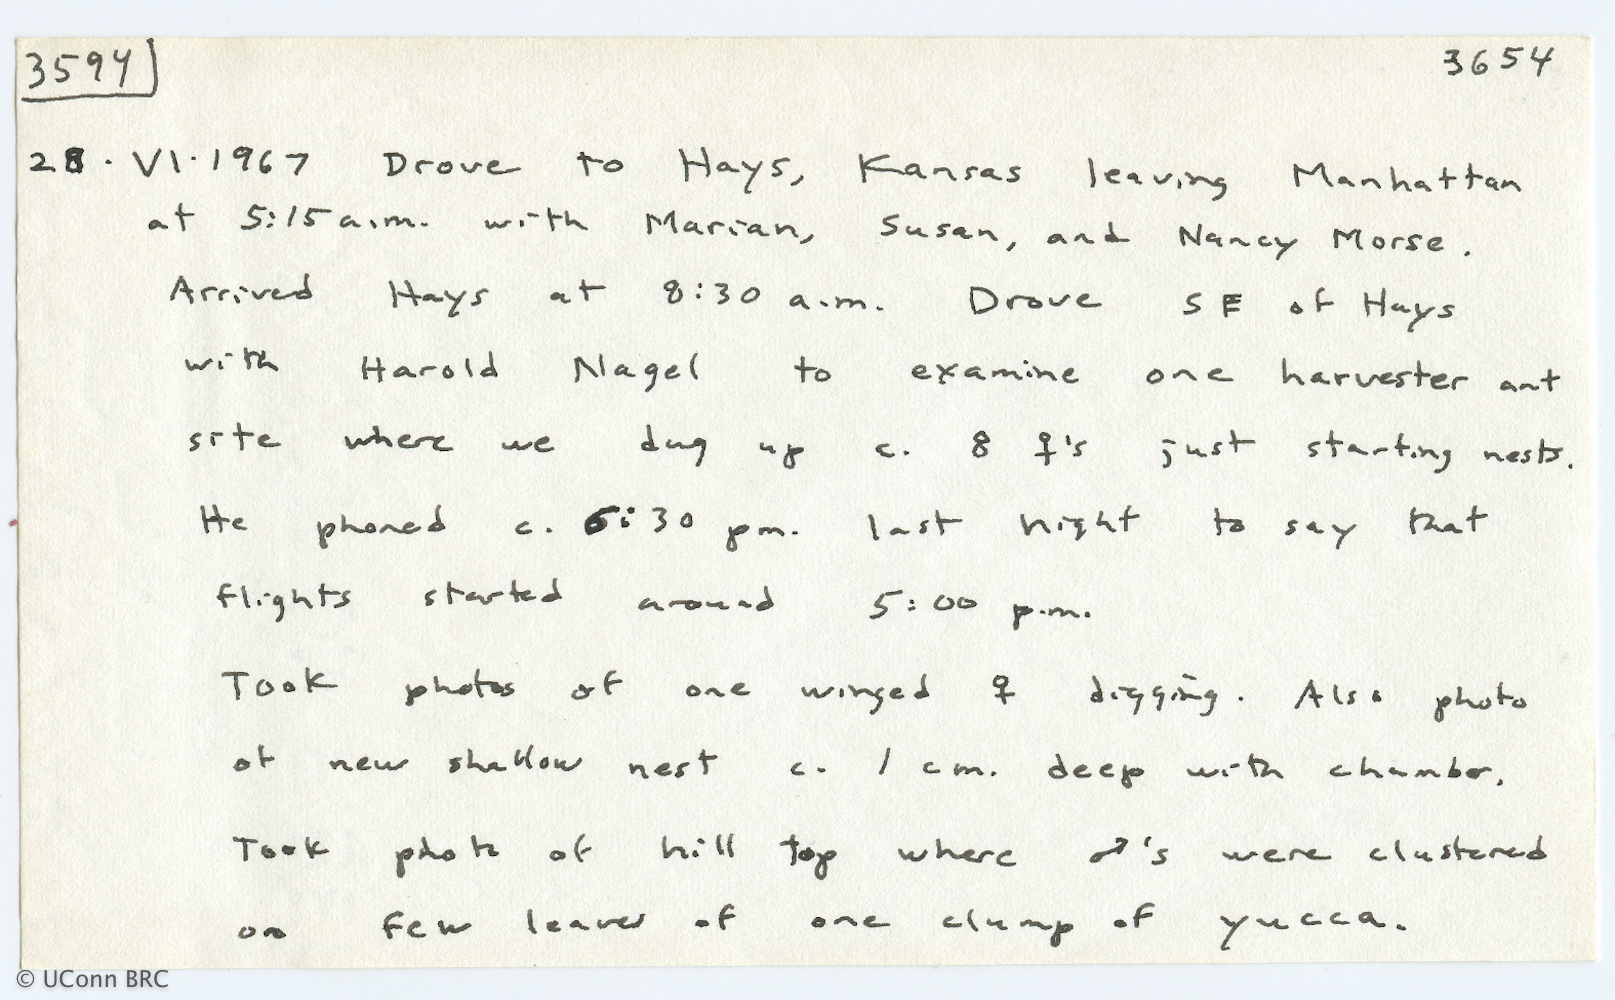 3594 3654
28.VI.1967 Drove to Hays, Kansas leaving Manhattan
at 5:15 a.m. with Marian, Susan, and Nancy Morse.
Arrived Hays at 8:30 a.m. Drove SE of Hays
with Harold Nagel to examine one harvester ant
site where we dug up c. 8 ♀'s just starting nests.
He phoned c. 6:30 pm. last night to say that
flights started around 5:00 p.m.
Took photos of one winged ♀ digging. Also photo
of new shallow nest c. 1 cm. deep with chamber.
Took photo of hill top where ♂'s were clustered
on few leaves of one clump of yucca.
© UConn BRC